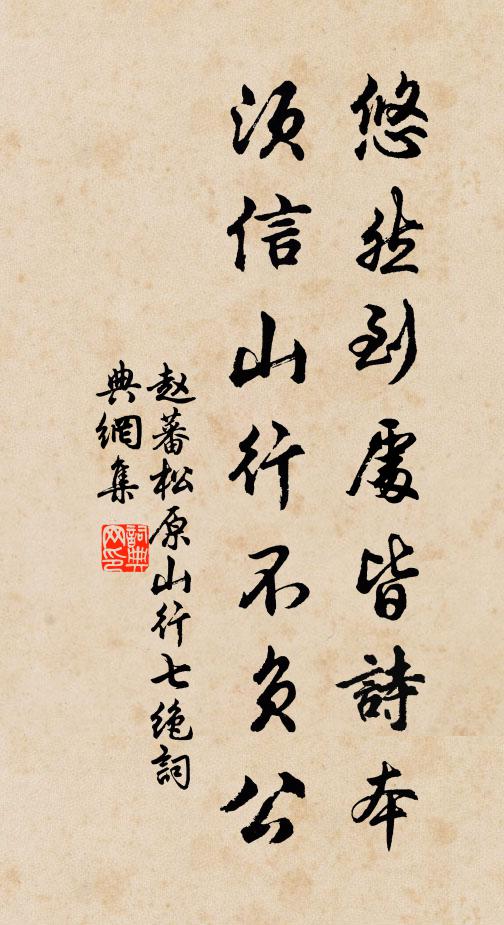 悠然到處皆詩本
須信山行不負公
赵蕃松原山行七绝詞
典網集
詞典
网印